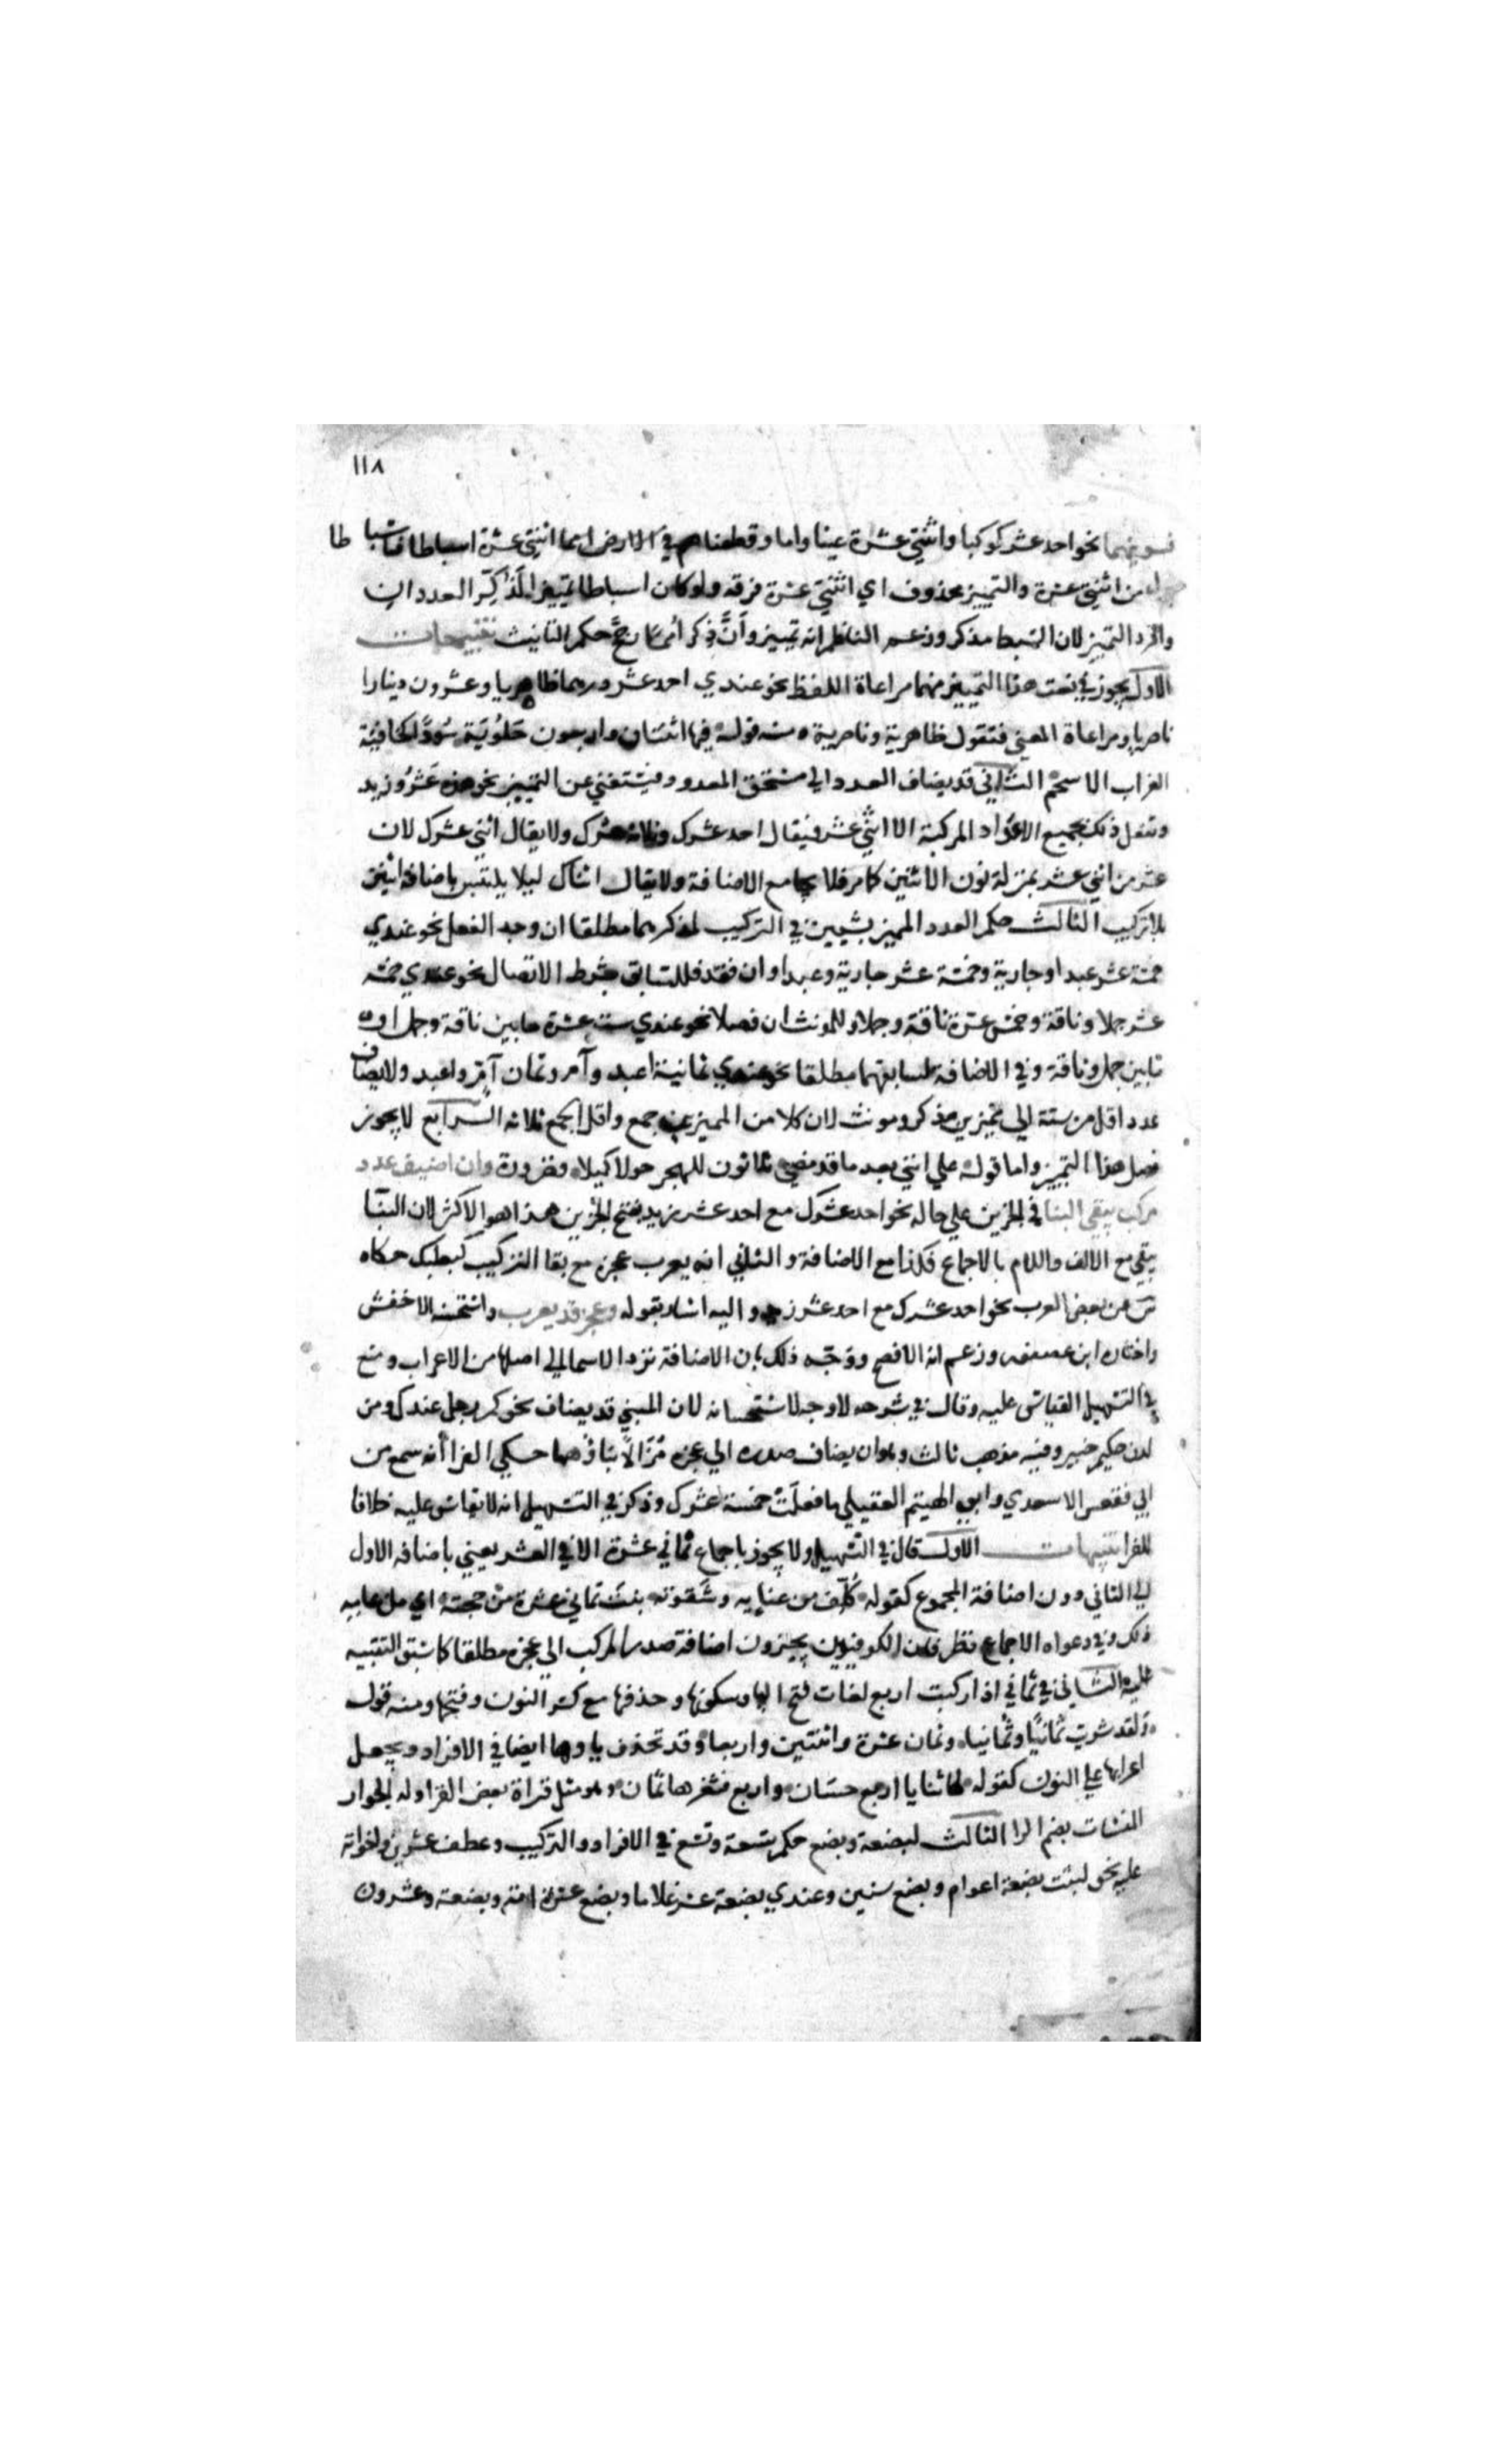 ١١٨
فسوينهما نحو احد عشر كوكبا واثنتي عشرة عينا واما وقطعناهم في الارض امما اثنتي عشرة اسباطا فاسباطا
بدل من اثنتي عشرة والتمييز محذوف اي اثنتي عشرة فرقة ولو كان اسباطا تمييزا لذكر العددان
وافرد التمييز لان السبط مذكر وزعم الناظم انه تمييز وأن ذكر امما رجح حكم التانيث تنبيهات
الاول يجوز في نعت هذا التمييز منهما مراعاة اللفظ نحو عندي احد عشر درهما ظاهريا وعشرون دينارا
ناصريا ومراعاة المعني فتقول ظاهرية وناصرية ومنه قوله فيها اثنتان واربعون حلوبة سودا كخافية
الغراب الاسحم الثاني قد يضاف العدد الي مستحق المعدود فيستغني عن التمييز نحو هذه عشرو زيد
وتفعل ذلك بجميع الاعداد المركبة الا اثني عشر فيقال احد عشرك وثلاثة عشرك ولا يقال اثني عشرك لان
عشر من اثني عشر بمنزلة نون الاثنين كما مر فلا يجامع الاضافة ولا يقال اثناك ليلا يلتبس باضافة اثنين
بلا تركيب الثالث حكم العدد المميز بشيين في التركيب لمذكرهما مطلقا ان وجد العقل نحو عندي
خمسة عشر عبدا وجارية وخمسة عشر جارية وعبدا وان فقد فللسابق بشرط الاتصال نحو عندي خمسة
عشر جملا وناقة وخمس عشرة ناقة وجملا وللمونث ان فصلا نحو عندي ست عشرة ما بين ناقة وجمل او
ما بين جمل وناقة وفي الاضافة لسابقهما مطلقا نحو عندي ثمانية اعبد وآم وثمان آم واعبد ولا يضاف
عدد اقل من ستة الي مميزين مذكر ومونث لان كلا من المميزين جمع واقل الجمع ثلاثة الرابع لا يجوز
فصل هذا التمييز واما قوله علي انني بعد ما قد مضي ثلاثون للهجر حولا كميلا فضرورة وان اضيف عدد
مركب يبقي البنا في الجزين علي حاله نحو احد عشرك مع احد عشر زيد بفتح الجزين هذا هو الاكثر لان البنا
يبقي مع الالف واللام بالاجماع فكذا مع الاضافة والثاني انه يعرب عجزه مع بقا التركيب كبعلبك حكاه
س عن بعض العرب نحو احد عشرك مع احد عشر زيد واليه اشار بقوله وعجز قد يعرب واستحسنه الاخفش
واختاره ابن عصفور وزعم انه الافصح ووجه ذلك بان الاضافة ترد الاسما الي اصلها من الاعراب ومنع
في التسهيل القياس عليه وقال في شرحه لا وجه لاستحسانه لان المبني قد يضاف نحو كم رجل عندك ومن
لدن حكيم خبير وفيه مذهب ثالث وهو ان يضاف صدره الي عجزه مزالا بناؤهما حكي الفرا أنه سمع من
ابي فقعس الاسدي وابي الهيثم العقيلي ما فعلت خمسة عشرك وذكر في التسهيل انه لا يقاس عليه خلافا
للفرا تنبيهات الاول قال في التسهيل ولا يجوز باجماع ثماني عشرة الا في الشعر يعني باضافه الاول
الي الثاني دون اضافة المجموع كقوله كلف من عنايه وشقوته بنت ثماني عشرة من حجته اي من عامه
ذلك وفي دعواه الاجماع نظر فان الكوفيون يجيزون اضافة صدر المركب الي عجزه مطلقا كما سبق التنبيه
عليه الثاني في ثماني اذا ركبت اربع لغات فتح اليا وسكونها وحذفها مع كسر النون وفتحها ومنه قوله
ولقد شربت ثمانيا وثمانيا وثمان عشرة واثنتين واربعا وقد تحذف ياوها ايضا في الافراد ويجعل
اعرابها علي النون كقوله لها ثنايا اربع حسان واربع فثغرها ثمان وهو مثل قراة بعض القرا وله الجوار
المنشات بضم الرا الثالث لبضعة وبضع حكم تسعة وتسع في الافراد والتركيب وعطف عشرين واخواته
عليه نحو لبثت بضعة اعوام وبضع سنين وعندي بضعة عشر غلاما وبضع عشرة امة وبضعة وعشرون